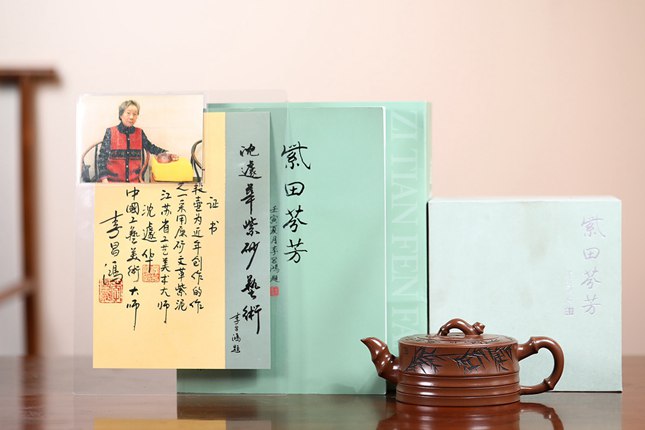 证书
此壶为近年创作的作
之一采用原矿文革紫泥
江苏省工艺美术大师
沈遽华
中国工艺美术大师
李昌鸿
沈遽華紫砂藝術
李昌鴻題
紫田芬芳
壬寅夏月李昌鴻題
ZI TIAN FEN FA
紫田芬芳